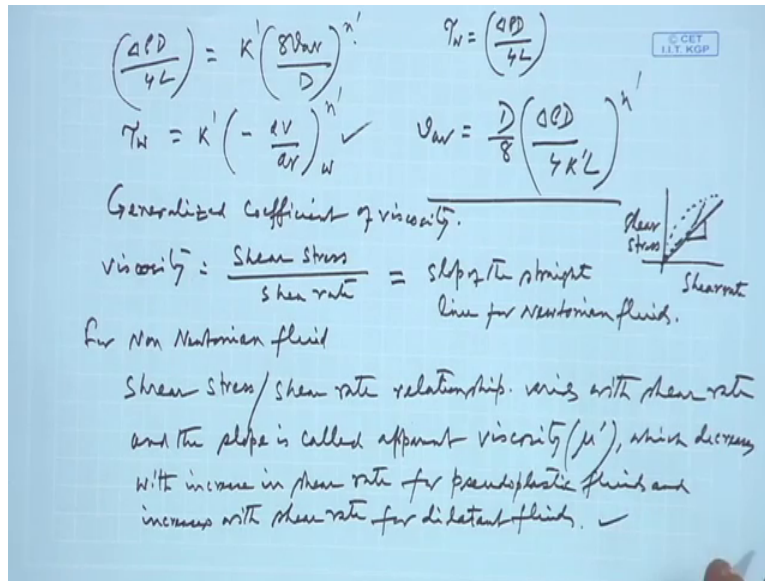 (ΔPD/4L) = K'(8Vav/D)^n'.
τw = (ΔPD/4L)
© CET
I.I.T. KGP
τw = K'(- dV/dr)w^n' ✓
vav = D/8 (ΔPD/4K'L)^n'
Generalized Coefficient of viscosity.
Shear
stress
Shear rate
viscosity = Shear Stress/shear rate = slope of the straight
line for Newtonian fluids.
For Non Newtonian fluid
Shrear stress/shear rate relationship. varies with shear rate
and the slope is called apparent viscosity (μ'), which decreases
with increase in shear rate for pseudoplastic fluids and
increases with shear rate for dilatant fluids. ✓